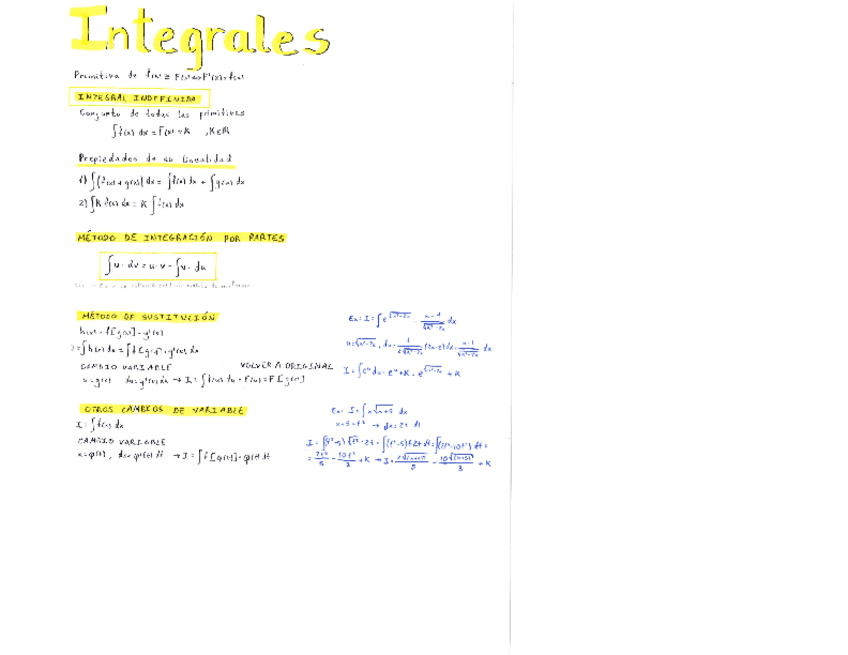 Integrales
Primitiva de f(x) ≡ F(x) ⇔ F'(x) = f(x)
INTEGRAL INDEFINIDA
Conjunto de todas las primitivas
∫f(x) dx = F(x) + K , K∈ℝ
Propiedades de su linealidad
1) ∫(f(x) + g(x)) dx = ∫f(x) dx + ∫g(x) dx
2) ∫K f(x) dx = K ∫f(x) dx
MÉTODO DE INTEGRACIÓN POR PARTES
∫u · dv = u · v - ∫v · du
MÉTODO DE SUSTITUCIÓN
h(x) = f[g(x)] · g'(x)
I = ∫h(x) dx = ∫f[g(x)] · g'(x) dx
CAMBIO VARIABLE VOLVER A ORIGINAL
u = g(x) du = g'(x) dx → I = ∫f(u) du = F(u) = F[g(x)]
Ex: I = ∫e^√(x²-2x) · (x-1)/√(x²-2x) dx
u = √(x²-2x), du = 1/(2√(x²-2x)) (2x-2) dx = (x-1)/√(x²-2x) dx
I = ∫e^u du = e^u + K = e^√(x²-2x) + K
OTROS CAMBIOS DE VARIABLE
I = ∫f(x) dx
CAMBIO VARIABLE
x = φ(t), dx = φ'(t) dt → I = ∫f[φ(t)] · φ'(t) dt
Ex: I = ∫x√(x+5) dx
x+5 = t² → dx = 2t dt
I = ∫(t²-5) √t² · 2t = ∫(t²-5) t 2t dt = ∫(2t⁴-10t²) dt =
= 2t⁵/5 - 10t³/3 + K → I = 2√(x+5)⁵/5 - 10√(x+5)³/3 + K